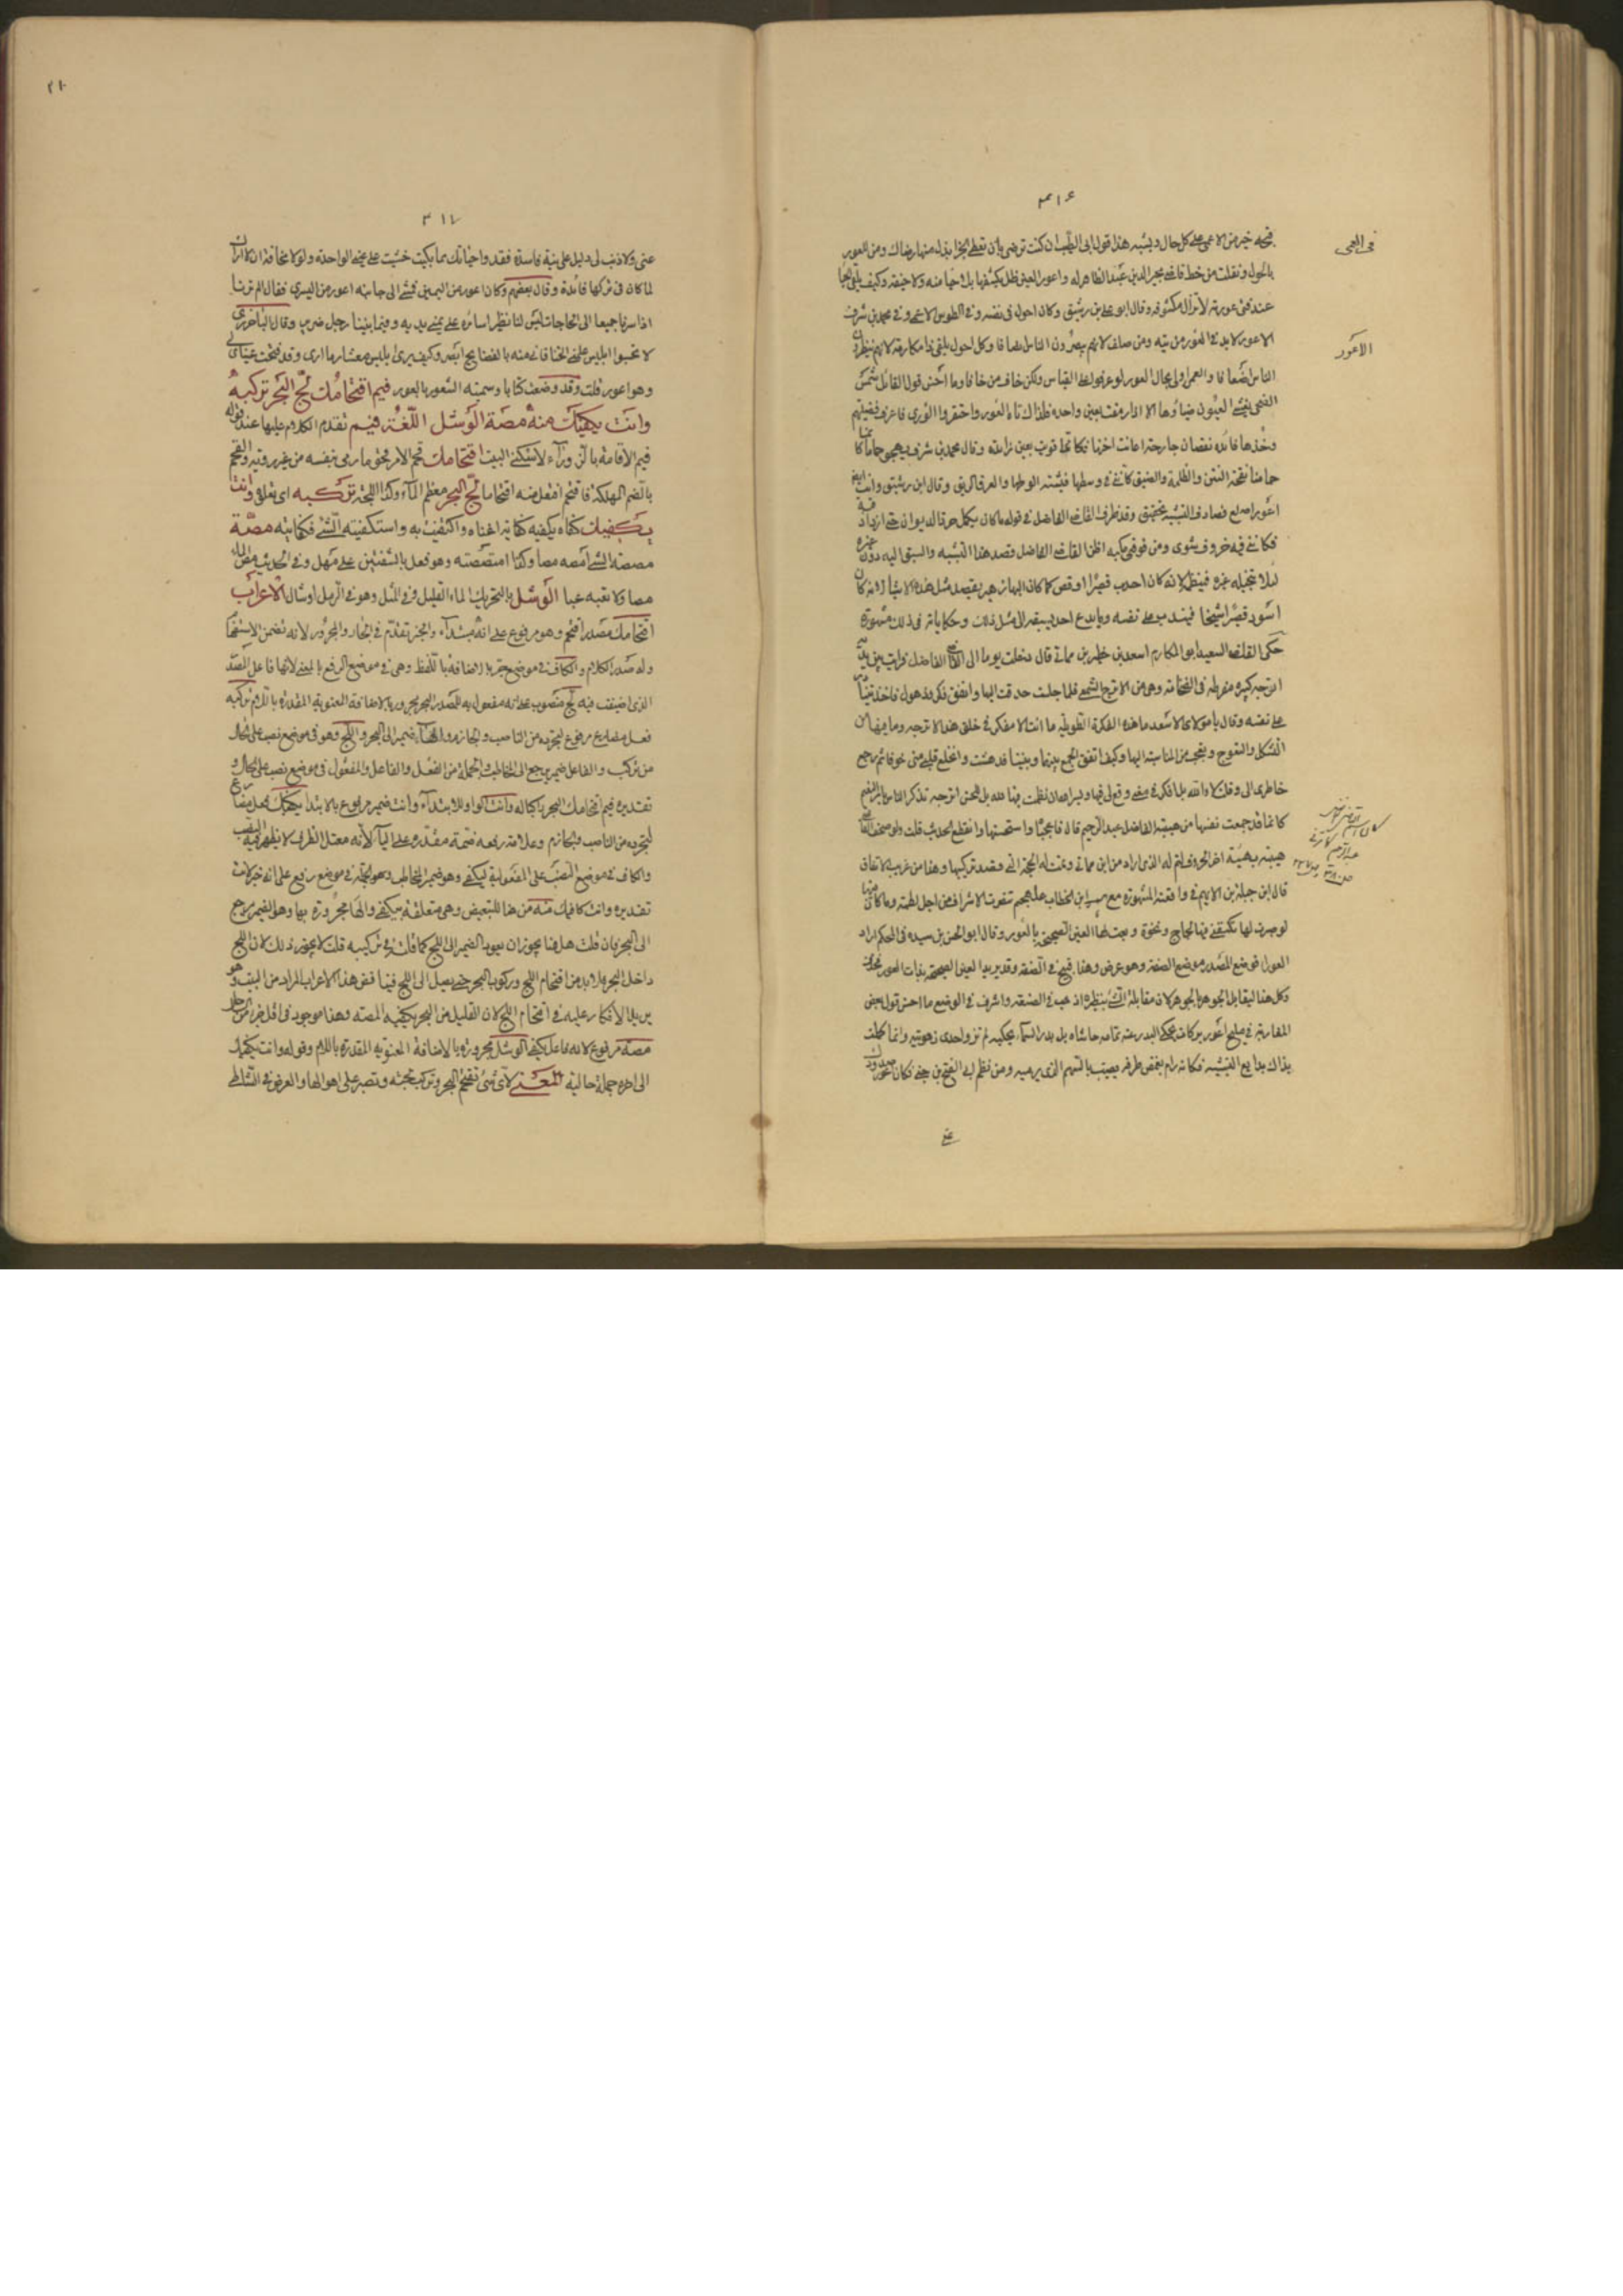 ٣١٦
في العمى
الاعور
قبحه خير من الاعمى على كل حال ويشبه هذا قول ابي الطيب ان كنت ترضى بان تعطى الجزا بذلوا منها رضاك ومن للعور
بالحول ونقلت من خط قاضي مجير الدين عبد الظاهر له واعور العين ظل يكشفها بلا حيا منه ولا خيفه وكيف يلقى الحيا
عند فتى عورته لا تزال مكشوفه وقال ابو علي بن رشيق وكان احول في نفسه وفي الطوس الاعمى وفي محمد بن شرف
الاعور لا بد في العور من تيه ومن صلف لانهم يبصرون الناس انصافا وكل احول يلقى ذا مكارمة لانهم ينظرون
الناس اضعافا والعمى اولى بحال العور لو عرفوا على القياس ولكن خاف من خافا وما احسن قول القائل شمس
الضحى يغشي العيون ضياؤها الا اذا رمقت بعين واحده فلذاك تاه العور واحتقروا الورى فاعرف فضيلتهم
وخذها فائده نقصان جارحة اعانت اختها فكانما قويت بعين زائدة وقال محمد بن شرف يهجو حماما
حمامنا فيه النتن والظلمة والضيق كانني في وسطها فيشة الوطها والعرق الريق وقال ابن رشيق وانت ايضا
اعور اصلع فصادف التشبيه تحقيق وقد ظرف القاضي الفاضل في قوله ما كان يكمل حر قال الديوان حتى ازداد
فكانني فيه خروف شوي ومن فوقي مكبه اظن القاضي الفاضل قصد هذا التشبيه والسبق اليه دون غيره
لئلا يتخيله غيره فينظم لانه كان احدب قصيرا اوقص كما كان البها زهير يقصد مثل هذه الاشيا لانه كان
اسود قصيرا شيخا فيندب على نفسه ويابدع احد يسبقه الى مثل ذلك وحكاياته في ذلك مشهورة
حكى القاضي السعيد ابو المكارم اسعد بن خطير بن مماتي قال دخلت يوما الى القاضي الفاضل فرايت بين يديه
اترجه كبيرة مفرطه في الضخامة وهي من الاترج الشمع فلما جلست حدقت اليها واتفق فكر وذهول فاخذ يتبادر
على نفسه وقال يا مولاي الاسعد ما هذه الفكرة الطويله ما انت الا مفكر في خلق هذه الاترجه وما فيها من
الشكل والتعوج وتعجب من المناسبة اليها وكيف اتفق الجمع بينها وبيننا فدهشت وانخلع قلبي مني خوفا ثم رجع
خاطري الي وقلت لا والله بل افكر في معنى وقع لي فيها ويسر الله ان نظمت فيها لله بل للحسن اترجه تذكر الناس بامر النعيم
كانما قد جمعت نفسها من هيبة الفاضل عبد الرحيم قال فاعجبا واستحسنها وانقطع الحديث قلت ولو صحف القاضي
هيبته بهيئة اخر الحروف لتم له الذي اراد من ابن مماتي وتمت له الحجة التي قصد تركيبها وهذا من غريب الاتفاق
قال ابن جبلة بن الايهم في واقعته المشهورة مع عمر بن الخطاب على جهم تنصرت الاشراف من اجل لطمة وما كان فيها
لو صبرت لها تكنفني فيها لجاج ونخوة وبعت لها العين الصحيحة بالعور وقال ابو الحسن بن سيده في المحكم اراد
العورا فوضع المصدر موضع الصفة وهو عرض وهذا قبيح في الصفة وقد يريد العين الصحيحة بذات العور فحذف
وكل هذا ليقابل الجوهر بالجوهر لان مقابلة الشي بنظيره اذهب في الصنعة واشرف في الوضع ما احسن قول بعض
المغاربة في مليح اعور بركانه يحكي البدر عند تمامه حاشاه بل بدر السما يحكيه لم تزو احدى زهوتيه وانما كملت
بذاك بدايع التشبيه فكانه رام يغمض طرفه ليصيب بالسهم الذي يرميه ومن نظم ابي الفتح بن جني وكان اعور
٣١٧
عني ولا ذنب لي دليل على نية فاسدة فقد وحياتك مما بكيت خشيت على عيني الواحدة ولولا مخافة ان لا اراك
لما كان في تركها فائدة وقال بعضهم وكان اعور من اليمين فمشى الى جانبه اعور من اليسرى فقال الم ترنا
اذا سرنا جميعا الى الحاجات ليس لنا نظير اسائره على يمنى يديه وفيما بيننا رجل ضرير وقال الباخرزي
لا تحسبوا ابليس علمني الخنا فانه منه بالفضايح ابصر وكيف يرى ابليس معشار ما ارى وقد فتحت عيناي لي
وهو اعور قلت وقد وضعت كتابا وسميته الشعور بالعور فيم اقتحامك لج البحر تركبه
وانت يكفيك منه مصة الوشل اللغة فيم تقدم الكلام عليها عند قوله
فيم الاقامة بالزوراء لا سكني البيت اقتحامك قحم الامر قحوما رمى بنفسه من غير روية والقحم
بالضم المهلكة فاقتحم افتعل منه اقتحاما لج البحر معظم الماء وكذا اللجة تركبه اي تعلوه وانت
يكفيك كفاه يكفيه كفاية اغناه واكتفيت به واستكفيته الشي فكفانيه مصة
مصصت الشي امصه مصا وكذا امتصصته وهو فعل بالشفتين على مهل وفي الحديث مصوا الماء
مصا ولا تعبه عبا الوشل بالتحريك الماء القليل وفي المثل وهل في الرمل اوشال الاعراب
اقتحامك مصدر اقتحم وهو مرفوع على انه مبتداء والخبر تقدم في الجار والمجرور لانه تضمن الاستفهام
وله صدر الكلام والكاف في موضع جر بالاضافة باللفظ وهي في موضع الرفع بالمعنى لانها فاعل المصدر
الذي اضيفت فيه لج منصوب على انه مفعول به للمصدر البحر مجرور بالاضافة المعنوية المقدرة باللام تركبه
فعل مضارع مرفوع لتجرده من الناصب والجازم والهاء ضمير الى البحر واللج وهو في موضع نصب على الحال
من تركب والفاعل ضمير يرجع الى المخاطب والجملة من الفعل والفاعل والمفعول في موضع نصب على الحال و
تقديره فيم اقتحامك البحر راكبا له وانت الواو للابتداء وانت ضمير مرفوع بالابتدا يكفيك فعل مضارع
لتجرده من الناصب والجازم وعلامة رفعه ضمة مقدرة على اليا لانه معتل الطرف لا يظهر فيه النصب
والكاف في موضع النصب على المفعولية ليكفي وهو ضمير المخاطب وهو الجملة في موضع رفع على انه خبر لانت
تقديره وانت كافيك منه من هنا للتبعيض وهي متعلقة بيكفي والهاء مجرورة بها وهو الضمير يرجع
الى البحر فان قلت هل هنا يجوز ان يعود الضمير الى اللج كما قلت في تركبه قلت لا يجوز ذلك لان اللج
داخل البحر ولا بد من اقتحام اللج وركوب البحر حتى يصل الى اللج فينا قض هذا الاعراب المراد من البيت وهو
يريد الانكار عليه في اقتحام اللج لان القليل من البحر يكفيه المصة وهذا موجود في اقل جزء من ساحله
مصة مرفوع لانه فاعل يكفي الوشل مجرورة بالاضافة المعنوية المقدرة باللام وقوله وانت يكفيك
الى اخره جملة حالية المعنى لاي شي تقتحم البحر وتركب لجته وتصبر على اهوالها والغرض في الشاطي